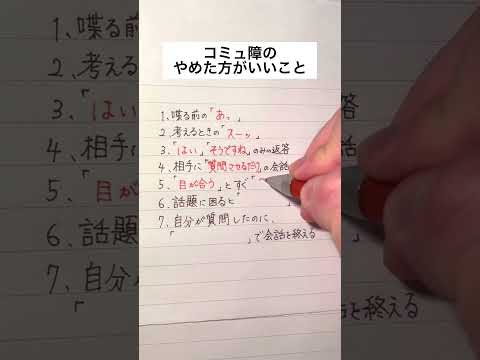 コミュ障の
やめた方がいいこと
1、喋る前の「あっ」
2、考えるときの「スーッ」
3、「はい」「そうですね」のみの返答
4、相手に「質問させるだけ」の会話
5、「目が合う」とすぐ「
6、話題に困ると「 」
7、自分が質問したのに、
「 」で会話を終える
1、喋る前
2、考える
3、「はい」
4、相手に
5、「目が合
6、話題
7、自分が
を終える